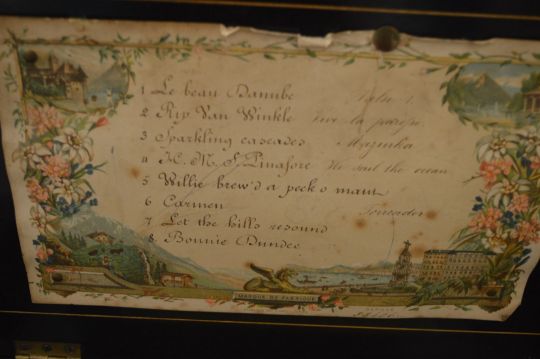 1 Le beau Danube Valse
2 Rip Van Winkle
3 Sparkling cascades Mazurka
4 H. M. S. Pinafore We sail the ocean
5 Willie brew'd a peck o maut
6 Carmen Toreador
7 Let the hills resound
8 Bonnie Dundee
MARQUE DE FABRIQUE